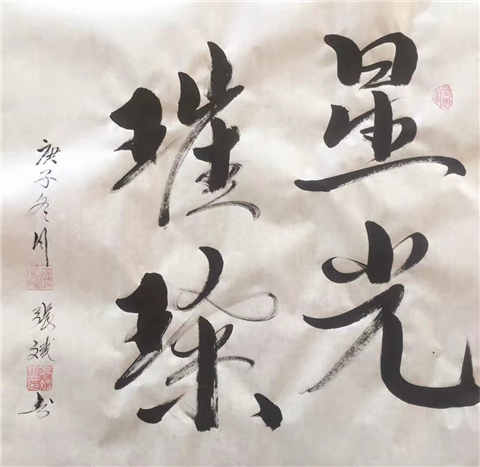 星光
璀璨
庚子冬月 張斌书